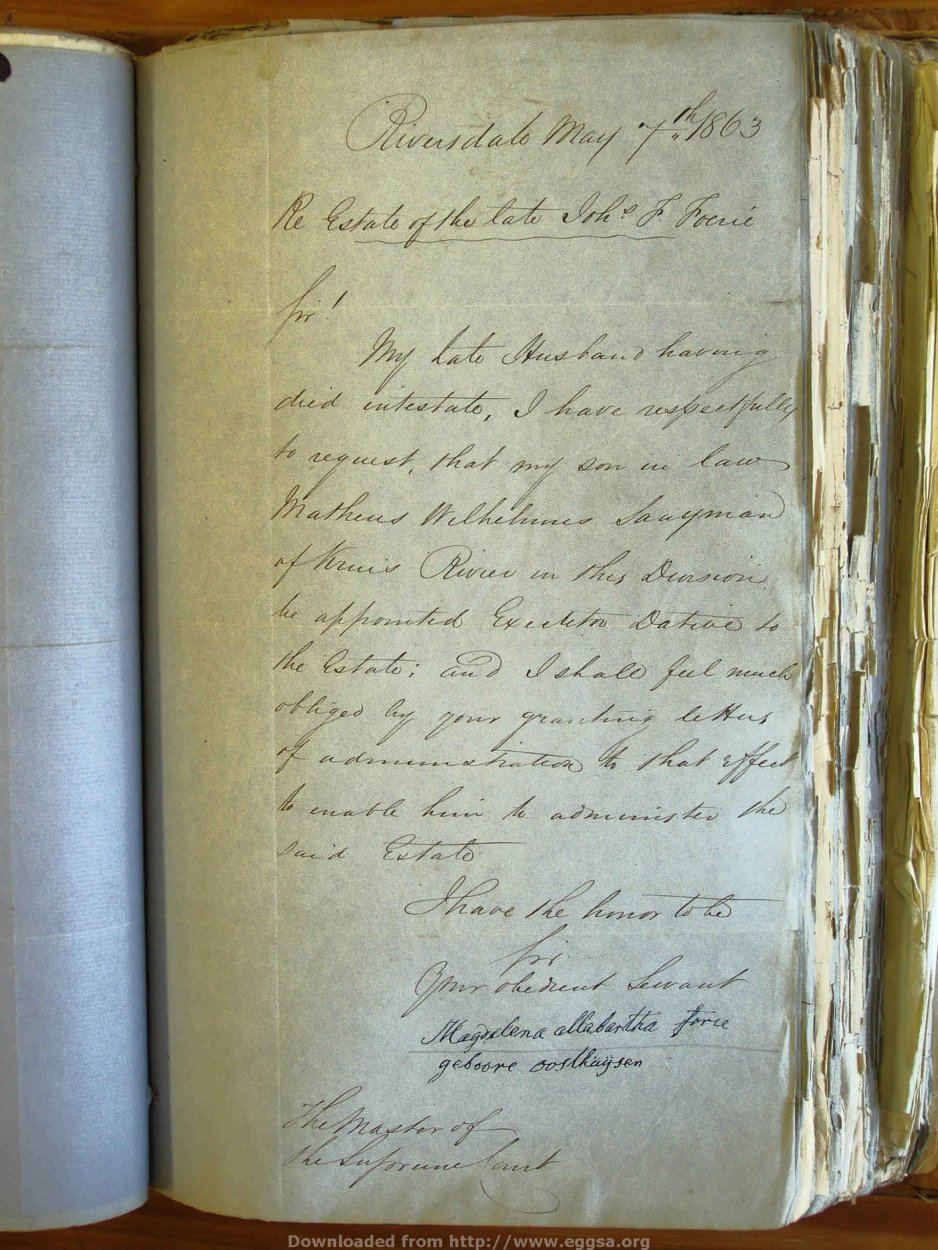 Riversdale May 7th 1863
Re Estate of the late Johs F. Foerie
Sir!
My late Husband having
died intestate, I have respectfully
to request, that my son in law
Matheus Wilhelmus Saayman
of Kruis Rivier in this Division
be appointed Executor Dative to
the Estate; and I shall feel much
obliged by your granting letters
of administration to that effect
to enable him to administer the
said Estate
I have the honor to be
Sir
Your obedient Servant
Magdelena allabartha forie
geboore oosthuÿsen
The Master of
the Supreme Court
Downloaded from http://www.eggsa.org